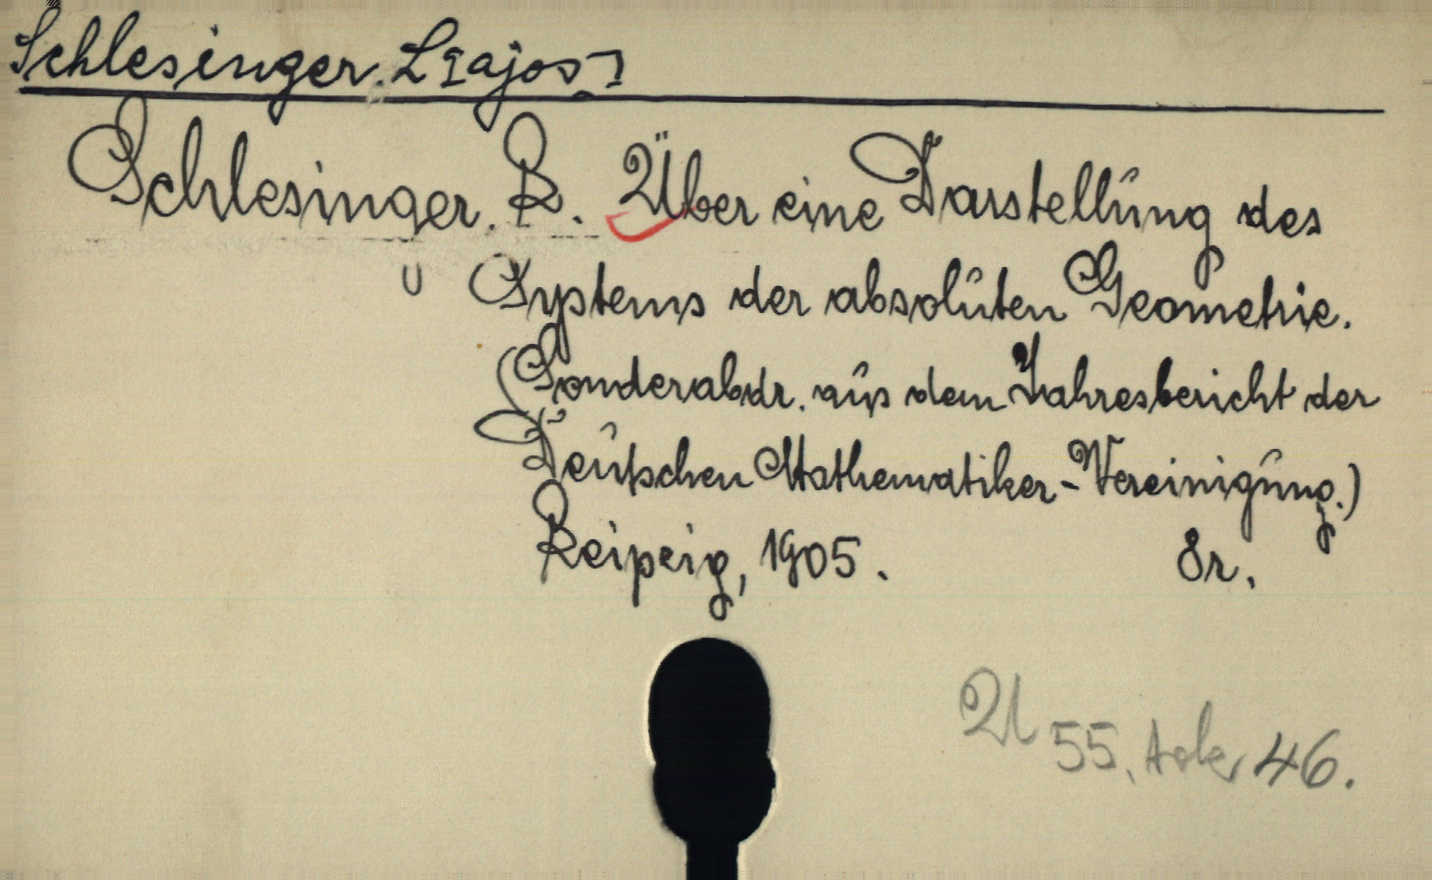 Schlesinger. L[ajos]
Schlesinger. L. Über eine Darstellung des
Systems der absoluten Geometrie.
(Sonderabdr. aus dem Jahresbericht der
Deutschen Mathematiker-Vereinigung.)
Leipzig, 1905. 8r.
U 55. 46.